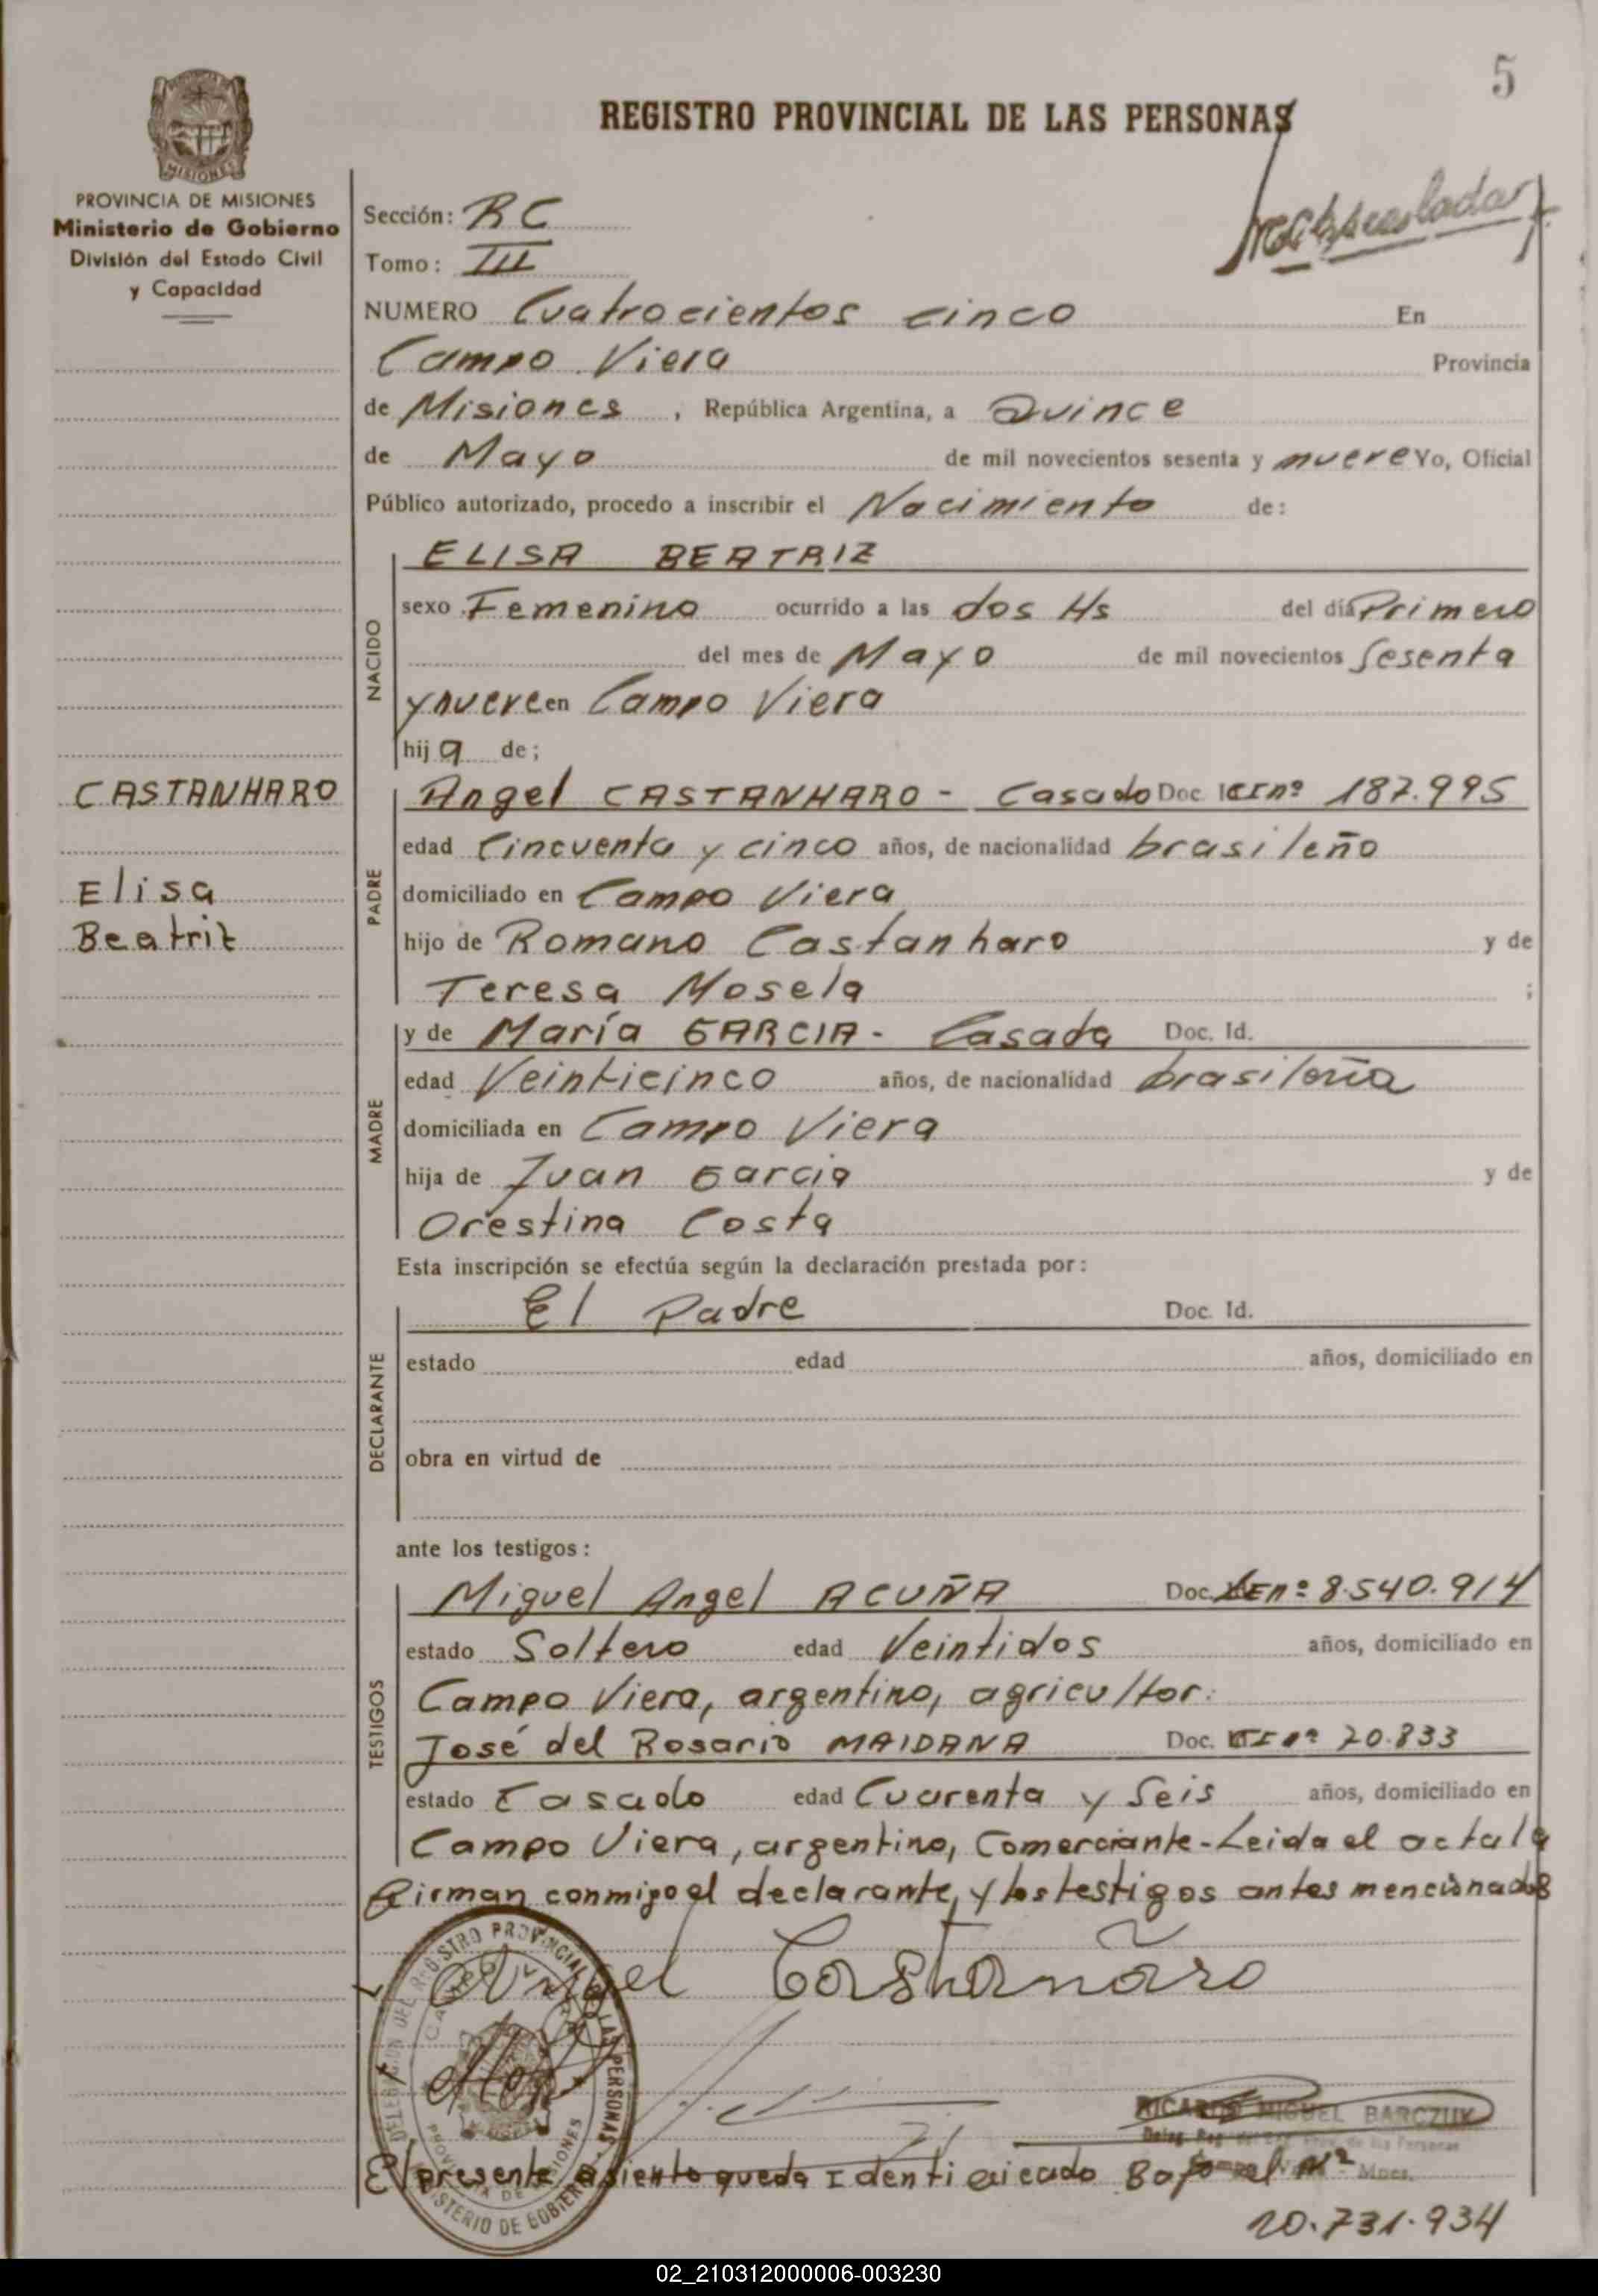 5
REGISTRO PROVINCIAL DE LAS PERSONAS
MISIONES
PROVINCIA DE MISIONES
Ministerio de Gobierno
División del Estado Civil
y Capacidad
Sección: RC
Tomo: III
NUMERO Cuatrocientos cinco En
Campo Viera Provincia
de Misiones, República Argentina, a Quince
de Mayo de mil novecientos sesenta y nueve Yo, Oficial
Público autorizado, procedo a inscribir el Nacimiento de:
NACIDO
ELISA BEATRIZ
sexo Femenino ocurrido a las dos Hs del día Primero
del mes de Mayo de mil novecientos Sesenta
y nueve en Campo Viera
hija de;
CASTANHARO
Elisa
Beatriz
PADRE
Angel CASTANHARO - Casado Doc. CI nº 187.995
edad Cincuenta y cinco años, de nacionalidad brasileño
domiciliado en Campo Viera
hijo de Romano Castanharo y de
Teresa Mosela ;
MADRE
y de María GARCIA - Casada Doc. Id.
edad Veinticinco años, de nacionalidad brasileña
domiciliada en Campo Viera
hija de Juan Garcia y de
Orestina Costa
Esta inscripción se efectúa según la declaración prestada por:
DECLARANTE
El Padre Doc. Id.
estado edad años, domiciliado en
obra en virtud de
ante los testigos:
TESTIGOS
Miguel Angel ACUÑA Doc. LE nº 8.540.914
estado Soltero edad Veintidos años, domiciliado en
Campo Viera, argentino, agricultor.
José del Rosario MAIDANA Doc. CI nº 20.833
estado Casado edad Cuarenta y Seis años, domiciliado en
Campo Viera, argentino, Comerciante - Leida el acta la
firman conmigo el declarante, y los testigos antes mencionados
Angel Castañaro
DELEGACION DEL REGISTRO PROVINCIAL DE LAS PERSONAS
CAMPO VIERA
PROVINCIA DE MISIONES
MINISTERIO DE GOBIERNO
RICARDO MIGUEL BARCZUK
El presente asiento queda Identificado Bajo el Nº
20.731.934
02_210312000006-003230